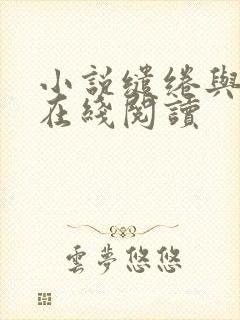 小說缱绻與
在綫閱讀
雲夢悠悠